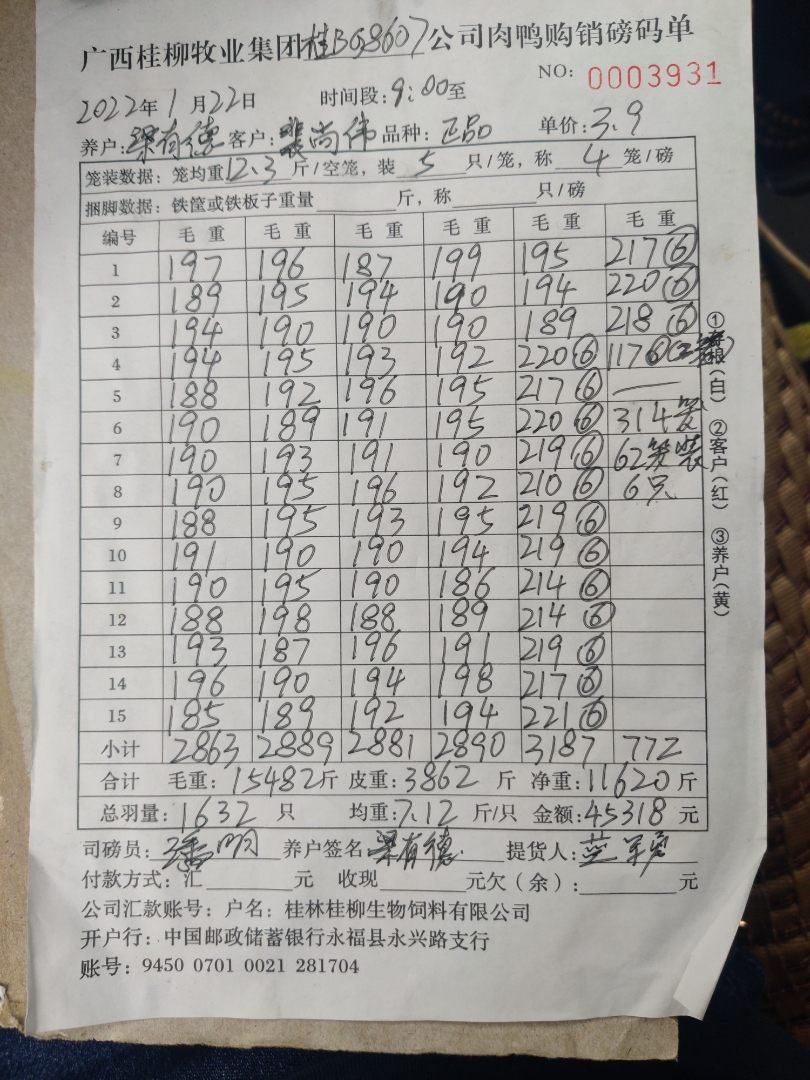 广西桂柳牧业集团桂BG8607公司肉鸭购销磅码单
NO: 0003931
2022年1月22日 时间段:9:00至
养户:梁有德 客户:裴尚伟 品种:正品 单价:3.9
笼装数据:笼均重12.3斤/空笼,装5只/笼,称4笼/磅
捆脚数据:铁筐或铁板子重量 斤,称 只/磅
编号 毛重 毛重 毛重 毛重 毛重 毛重
1 197 196 187 199 195 217⑥
2 189 195 194 190 194 220⑥
3 194 190 190 190 189 218⑥
4 194 195 193 192 220⑥ 117⑥
5 188 192 196 195 217⑥ —
6 190 189 191 195 220⑥ 314笼
7 190 193 191 190 219⑥ 62笼装
8 190 195 196 192 210⑥ 6只
9 188 195 193 195 219⑥
10 191 190 190 194 219⑥
11 190 195 190 186 214⑥
12 188 198 188 189 214⑥
13 193 187 196 191 219⑥
14 196 190 194 198 217⑥
15 185 189 192 194 221⑥
小计 2863 2889 2881 2890 3187 772
合计 毛重:15482斤 皮重:3862斤 净重:11620斤
总羽量:1632只 均重:7.12斤/只 金额:45318元
司磅员:潘明 养户签名梁有德. 提货人:
付款方式:汇 元 收现 元欠(余): 元
公司汇款账号:户名:桂林桂柳生物饲料有限公司
开户行:中国邮政储蓄银行永福县永兴路支行
账号:9450 0701 0021 281704
①存根(白) ②客户(红) ③养户(黄)